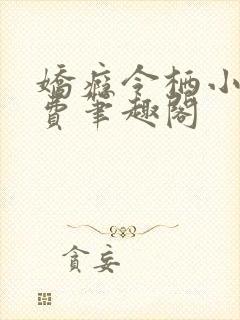 嬌癡令栖小
費筆趣閣
貪妄